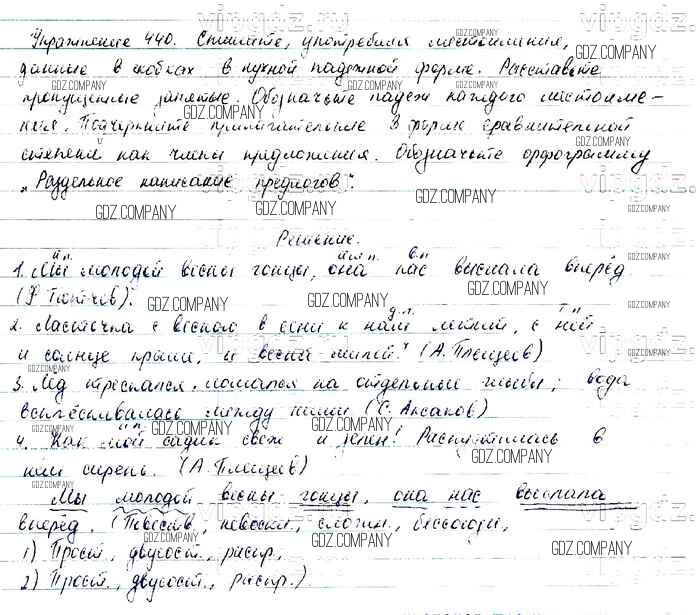 Упражнение 440. Спишите, употребляя местоимения,
данные в скобках в нужной падежной форме. Расставьте
пропущенные запятые. Обозначьте падеж каждого местоиме-
ния. Подчеркните прилагательные в форме сравнительной
степени как члены предложения. Обозначьте орфограмму
„Раздельное написание предлогов“.
Решение.
и.п. и.п. в.п.
1. Мы молодой весны гонцы, она нас выслала вперёд
(Ф. Тютчев).
д.п. т.п.
2. Ласточка с весною в сени к нам летит, с ней
и солнце краше, и весна милей. (А. Плещеев)
3. Лёд трескался, ломался на отдельные глыбы; вода
всплёскивалась между ними (С. Аксаков)
и.п.
4. Как мой садик свеж и зелен! Распустилась в
нём сирень. (А. Плещеев)
Мы молодой весны гонцы, она нас выслала
вперёд. (Повеств., невоскл., сложн., бессоюзн,
1) Прост., двусост., распр.,
2) Прост., двусост., распр.)
GDZ.COMPANY
vipgdz.ru